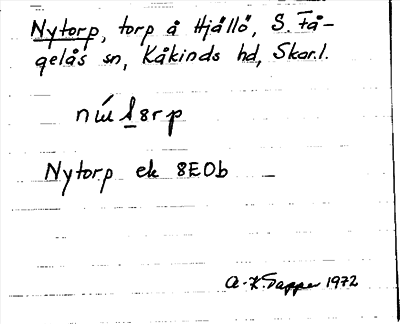 Nytorp, torp å Hjällö, S. Få-
gelås sn, Kåkinds hd, Skar.l.
Nytorp ek 8E0b —
A-K. Tapper 1972